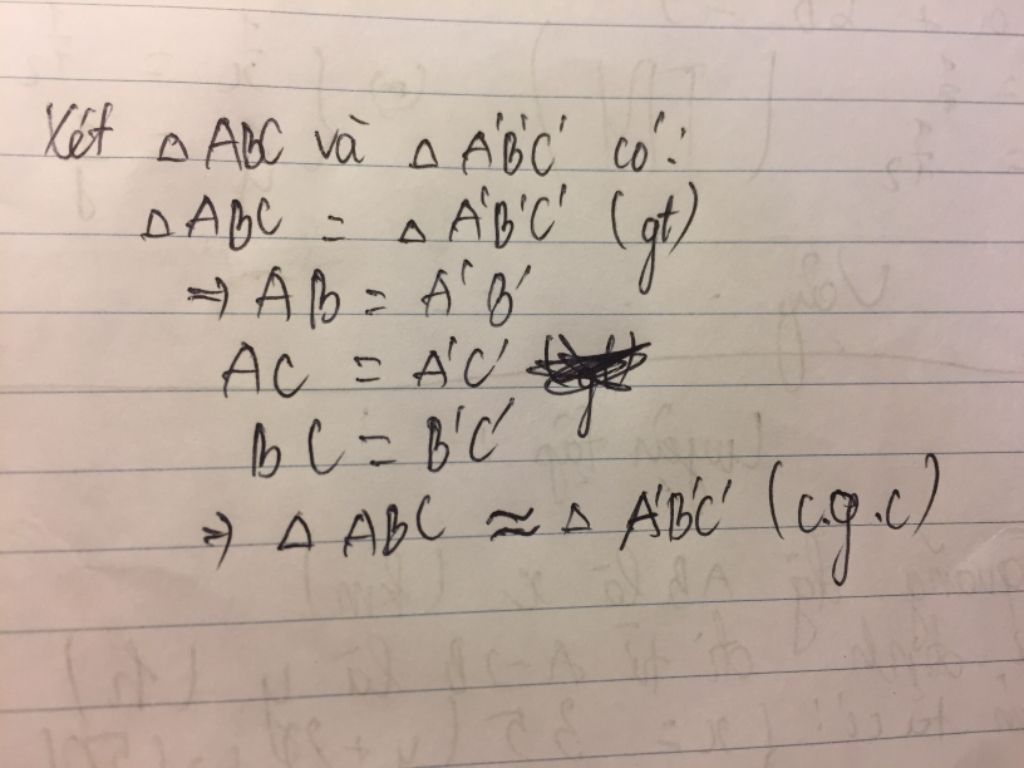 Xét △ ABC và △ A'B'C' có:
△ ABC = △ A'B'C' (gt)
⇒ AB = A'B'
AC = A'C'
BC = B'C'
⇒ △ ABC ≈ △ A'B'C' (c.g.c)